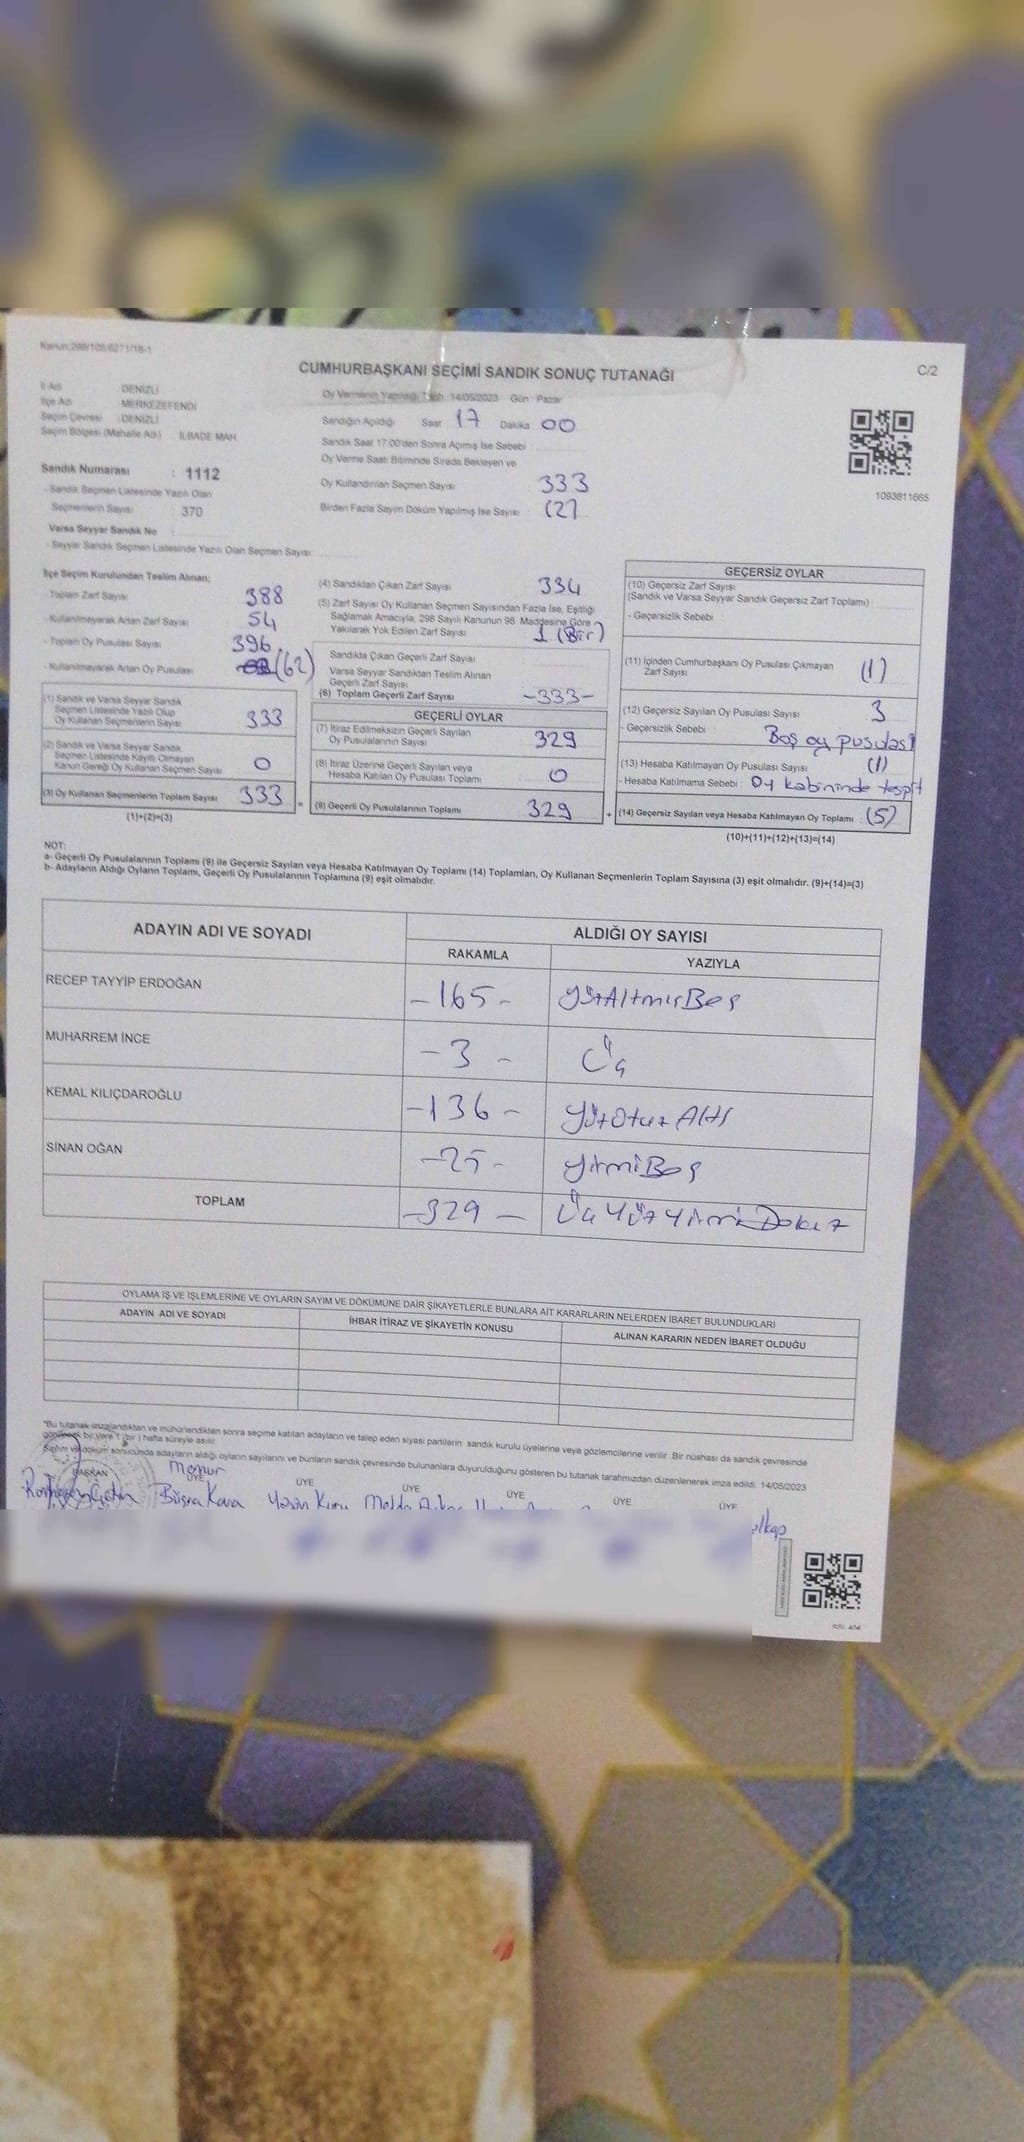 Kanun:298/105;6271/18-1
CUMHURBAŞKANI SEÇİMİ SANDIK SONUÇ TUTANAĞI
C/2
İl Adı DENİZLİ
İlçe Adı MERKEZEFENDİ
Seçim Çevresi : DENİZLİ
Seçim Bölgesi (Mahalle Adı) : İLBADE MAH.
Sandık Numarası : 1112
- Sandık Seçmen Listesinde Yazılı Olan
Seçmenlerin Sayısı 370
Varsa Seyyar Sandık No
- Seyyar Sandık Seçmen Listesinde Yazılı Olan Seçmen Sayısı
Oy Vermenin Yapıldığı Tarih 14/05/2023 Gün Pazar
Sandığın Açıldığı Saat 17 Dakika 00
Sandık Saat 17:00'den Sonra Açımış İse Sebebi
Oy Verme Saati Bitiminde Sırada Bekleyen ve
Oy Kullandırılan Seçmen Sayısı 333
Birden Fazla Sayım Döküm Yapılmış İse Sayısı (2)
1093811665
İlçe Seçim Kurulundan Teslim Alınan;
- Toplam Zarf Sayısı 388
- Kullanılmayarak Artan Zarf Sayısı 54
- Toplam Oy Pusulası Sayısı 396
- Kullanılmayarak Artan Oy Pusulası (62)
(1) Sandık ve Varsa Seyyar Sandık
Seçmen Listesinde Yazılı Olup
Oy Kullanan Seçmenlerin Sayısı 333
(2) Sandık ve Varsa Seyyar Sandık
Seçmen Listesinde Kayıtlı Olmayan
Kanun Gereği Oy Kullanan Seçmen Sayısı 0
(3) Oy Kullanan Seçmenlerin Toplam Sayısı 333 =
(1)+(2)=(3)
(4) Sandıktan Çıkan Zarf Sayısı 334
(5) Zarf Sayısı Oy Kullanan Seçmen Sayısından Fazla İse, Eşitliği
Sağlamak Amacıyla, 298 Sayılı Kanunun 98. Maddesine Göre
Yakılarak Yok Edilen Zarf Sayısı 1 (Bir)
Sandıkta Çıkan Geçerli Zarf Sayısı
Varsa Seyyar Sandıktan Teslim Alınan
Geçerli Zarf Sayısı
(6) Toplam Geçerli Zarf Sayısı -333-
GEÇERLİ OYLAR
(7) İtiraz Edilmeksizin Geçerli Sayılan
Oy Pusulalarının Sayısı 329
(8) İtiraz Üzerine Geçerli Sayılan veya
Hesaba Katılan Oy Pusulası Toplamı 0
(9) Geçerli Oy Pusulalarının Toplamı 329 +
GEÇERSİZ OYLAR
(10) Geçersiz Zarf Sayısı
(Sandık ve Varsa Seyyar Sandık Geçersiz Zarf Toplamı)
- Geçersizlik Sebebi
(11) İçinden Cumhurbaşkanı Oy Pusulası Çıkmayan
Zarf Sayısı (1)
(12) Geçersiz Sayılan Oy Pusulası Sayısı 3
- Geçersizlik Sebebi Boş oy pusulası
(13) Hesaba Katılmayan Oy Pusulası Sayısı (1)
- Hesaba Katılmama Sebebi : Oy kabininde tespit
(14) Geçersiz Sayılan veya Hesaba Katılmayan Oy Toplamı (5)
(10)+(11)+(12)+(13)=(14)
NOT:
a- Geçerli Oy Pusulalarının Toplamı (9) ile Geçersiz Sayılan veya Hesaba Katılmayan Oy Toplamı (14) Toplamları, Oy Kullanan Seçmenlerin Toplam Sayısına (3) eşit olmalıdır. (9)+(14)=(3)
b- Adayların Aldığı Oyların Toplamı, Geçerli Oy Pusulalarının Toplamına (9) eşit olmalıdır.
ADAYIN ADI VE SOYADI ALDIĞI OY SAYISI
RAKAMLA YAZIYLA
RECEP TAYYİP ERDOĞAN -165- YüzAltmışBeş
MUHARREM İNCE -3- Üç
KEMAL KILIÇDAROĞLU -136- YüzOtuzAltı
SİNAN OĞAN -25- YirmiBeş
TOPLAM -329- ÜçYüzYirmiDokuz
OYLAMA İŞ VE İŞLEMLERİNE VE OYLARIN SAYIM VE DÖKÜMÜNE DAİR ŞİKAYETLERLE BUNLARA AİT KARARLARIN NELERDEN İBARET BULUNDUKLARI
ADAYIN ADI VE SOYADI İHBAR İTİRAZ VE ŞİKAYETİN KONUSU ALINAN KARARIN NEDEN İBARET OLDUĞU
*Bu tutanak imzalandıktan ve mühürlendikten sonra seçime katılan adayların ve talep eden siyasi partilerin sandık kurulu üyelerine veya gözlemcilerine verilir. Bir nüshası da sandık çevresinde
görülecek bir yere 1 (bir) hafta süreyle asılır.
Sayım ve döküm sonucunda adayların aldığı oyların sayılarını ve bunların sandık çevresinde bulunanlara duyurulduğunu gösteren bu tutanak tarafımızdan düzenlenerek imza edildi. 14/05/2023
BAŞKAN Memur ÜYE ÜYE ÜYE ÜYE ÜYE ÜYE
Büşra Kara